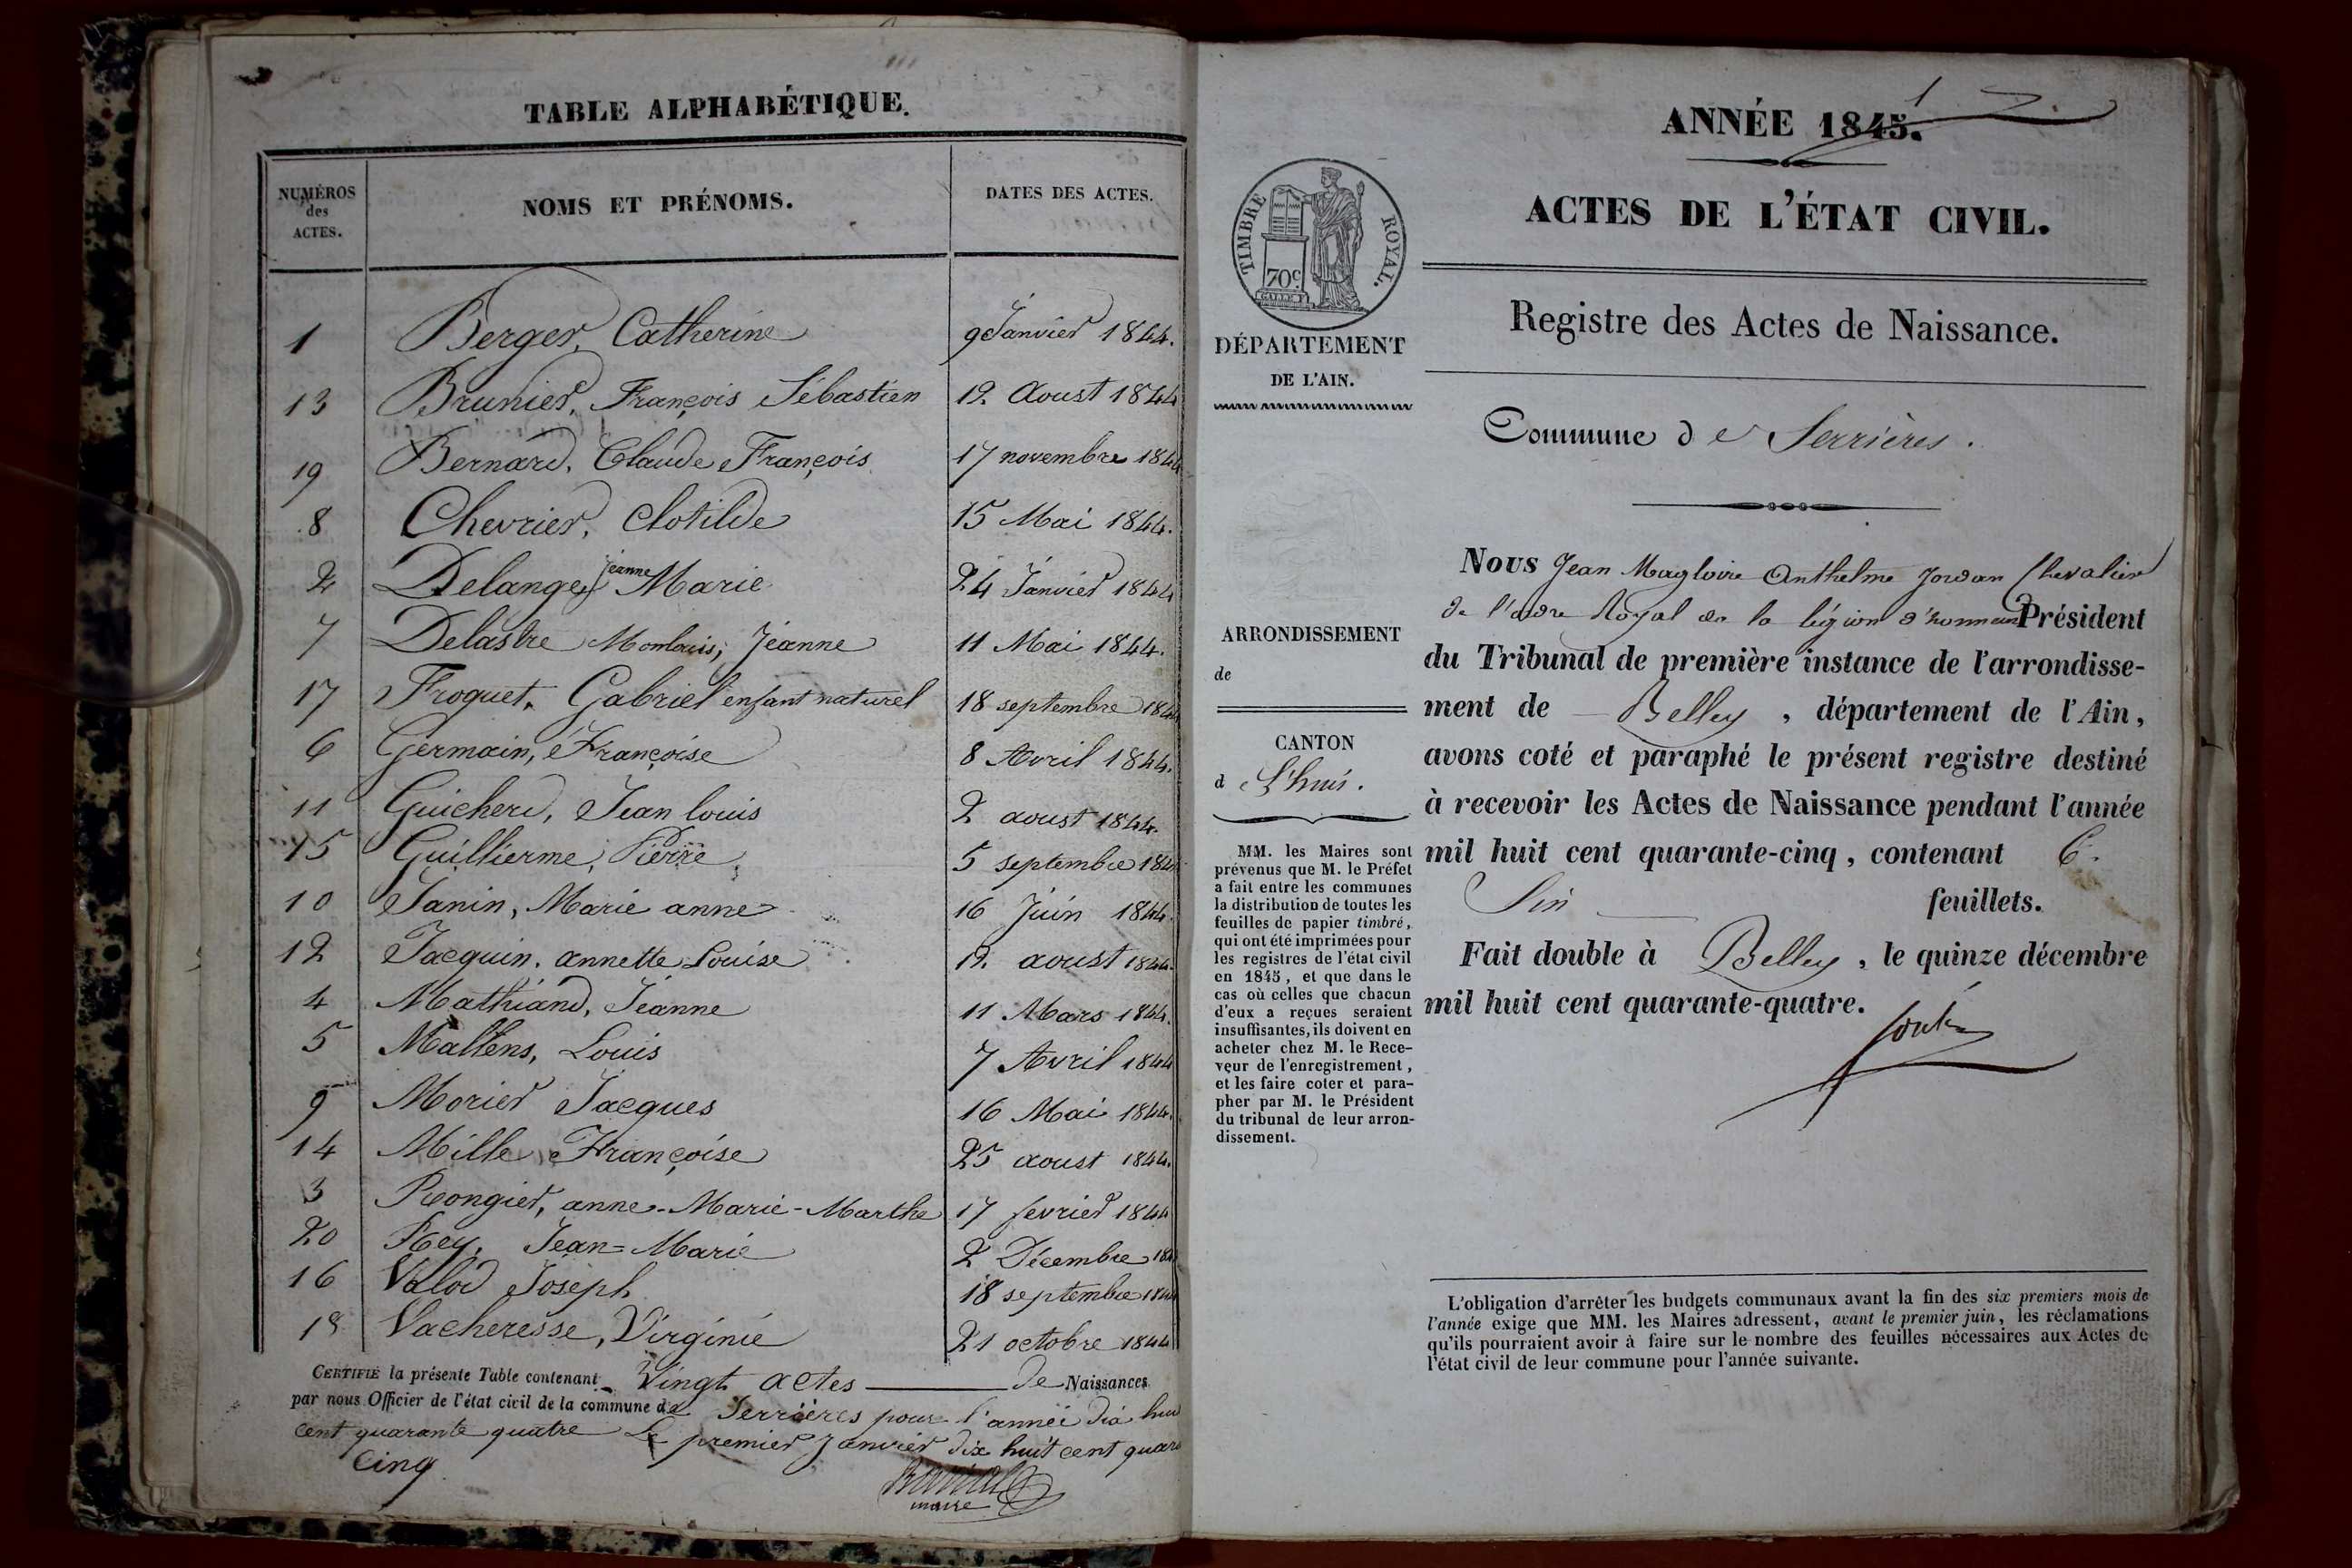 TABLE ALPHABÉTIQUE.
NUMÉROS des ACTES. NOMS ET PRÉNOMS. DATES DES ACTES.
1 Berger, Catherine 9 Janvier 1844.
13 Brunier, François Sébastien 12. Aoust 1844
19 Bernard, Claude François 17 novembre 1844
8 Chevrier, Clotilde 15 Mai 1844.
2 Delange, jeanne Marie 24 Janvier 1844
7 Delastre Monlouis, Jeanne 11 Mai 1844.
17 Froquet, Gabriel enfant naturel 18 septembre 1844
6 Germain, Françoise 8 Avril 1844.
11 Guicherd, Jean louis 2 aoust 1844.
15 Guillierme, Pierre 5 septembre 1844
10 Janin, Marie anne 16 Juin 1844.
12 Jacquin, annette Louise 12. aoust 1844.
4 Mathiand, Jéanne 11 Mars 1844.
5 Mallens, Louis 7 Avril 1844
9 Morier Jacques 16 Mai 1844.
14 Mille Françoise 25 aoust 1844.
3 Rongier, anne-Marie-Marthe 17 fevrier 1844
20 Rey, Jean=Marie 2 Décembre 184
16 Valod Joseph 18 septembre 1844
18 Vacheresse, Virginie 21 octobre 1844
CERTIFIÉ la présente Table contenant Vingt actes de Naissances
par nous Officier de l'état civil de la commune de Serrières pour l'année dix huit
cent quarante quatre Le premier Janvier dix huit cent quara
cinq
maire
ANNÉE 1845.
ACTES DE L'ÉTAT CIVIL.
Registre des Actes de Naissance.
TIMBRE ROYAL.
70c.
GALLE F.
DÉPARTEMENT
DE L'AIN.
Commune de Serrières.
ARRONDISSEMENT
de
CANTON
d L'huis.
MM. les Maires sont
prévenus que M. le Préfet
a fait entre les communes
la distribution de toutes les
feuilles de papier timbré,
qui ont été imprimées pour
les registres de l'état civil
en 1845, et que dans le
cas où celles que chacun
d'eux a reçues seraient
insuffisantes, ils doivent en
acheter chez M. le Rece-
veur de l'enregistrement,
et les faire coter et para-
pher par M. le Président
du tribunal de leur arron-
dissement.
NOUS Jean Magloire Anthelme Jordan Chevalier
de l'ordre Royal de la légion d'honneur Président
du Tribunal de première instance de l'arrondisse-
ment de Belley, département de l'Ain,
avons coté et paraphé le présent registre destiné
à recevoir les Actes de Naissance pendant l'année
mil huit cent quarante-cinq, contenant 6.
Six feuillets.
Fait double à Belley, le quinze décembre
mil huit cent quarante-quatre.
L'obligation d'arrêter les budgets communaux avant la fin des six premiers mois de
l'année exige que MM. les Maires adressent, avant le premier juin, les réclamations
qu'ils pourraient avoir à faire sur le nombre des feuilles nécessaires aux Actes de
l'état civil de leur commune pour l'année suivante.